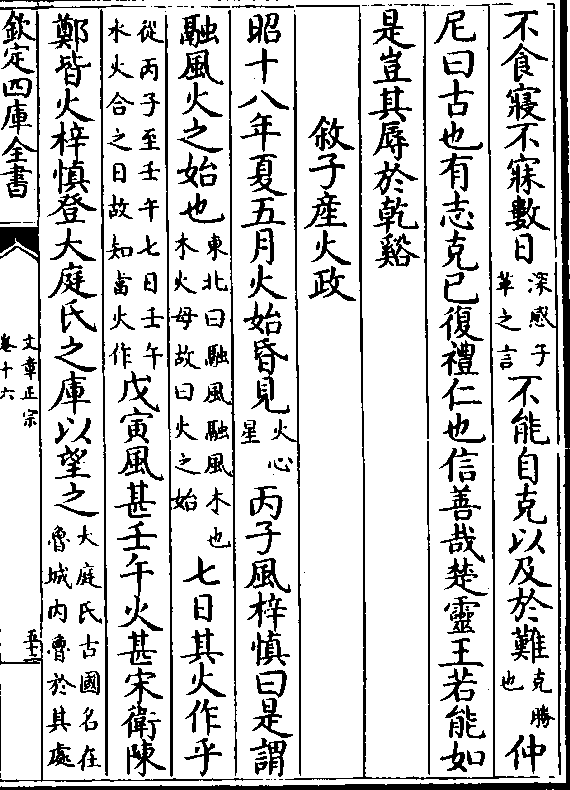 不食寢不寐數日深感子革之言不能自克以及於難克勝也仲
尼曰古也有志克已復禮仁也信善哉楚靈王若能如
是豈其辱於乾谿
敘子産火政
昭十八年夏五月火始昏見火心星丙子風梓慎曰是謂
融風火之始也東北曰融風融風木也木火母故曰火之始七日其火作乎
從丙子至壬午七日壬午水火合之日故知當火作戊寅風甚壬午火甚宋衛陳
鄭皆火梓慎登大庭氏之庫以望之大庭氏古國名在魯城内魯於其處
欽定四庫全書
文章正宗
卷十六